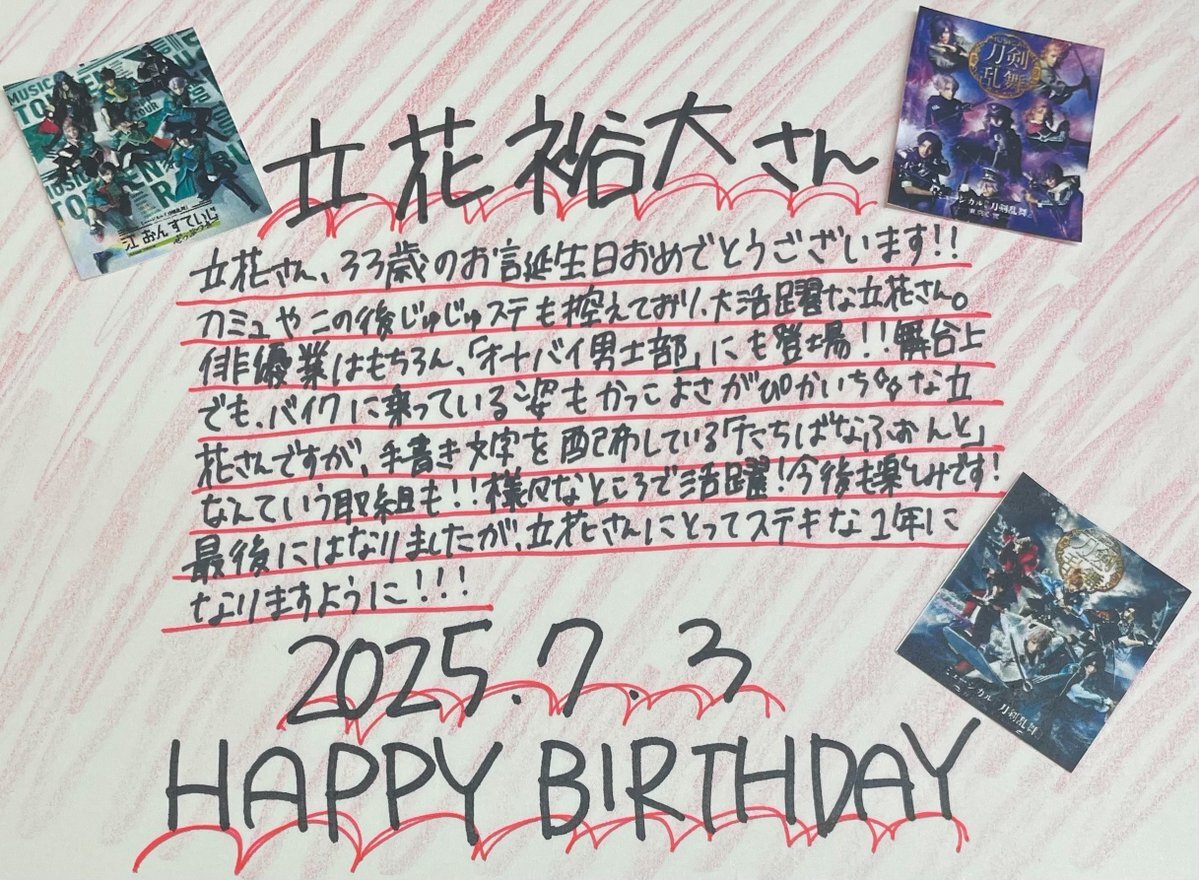 立花裕大さん
立花さん、33歳のお誕生日おめでとうございます!!
カミュやこの後じゅじゅステも控えており、大活躍な立花さん。
俳優業はもちろん、「オトバイ男士部」にも登場!!舞台上
でも、バイクに乗っている姿もかっこよさがぴかいちな立
花さんですが、手書き文字を配布している「たちばなふぉんと」
なんていう取組も!!様々なところで活躍!今後も楽しみです!
最後にはなりましたが、立花さんにとってステキな1年に
なりますように!!!
2025.7.3
HAPPY BIRTHDAY
江 おん すていじ
刀剣
乱舞
ミュージカル 刀剣乱舞
ミュージカル 刀剣乱舞